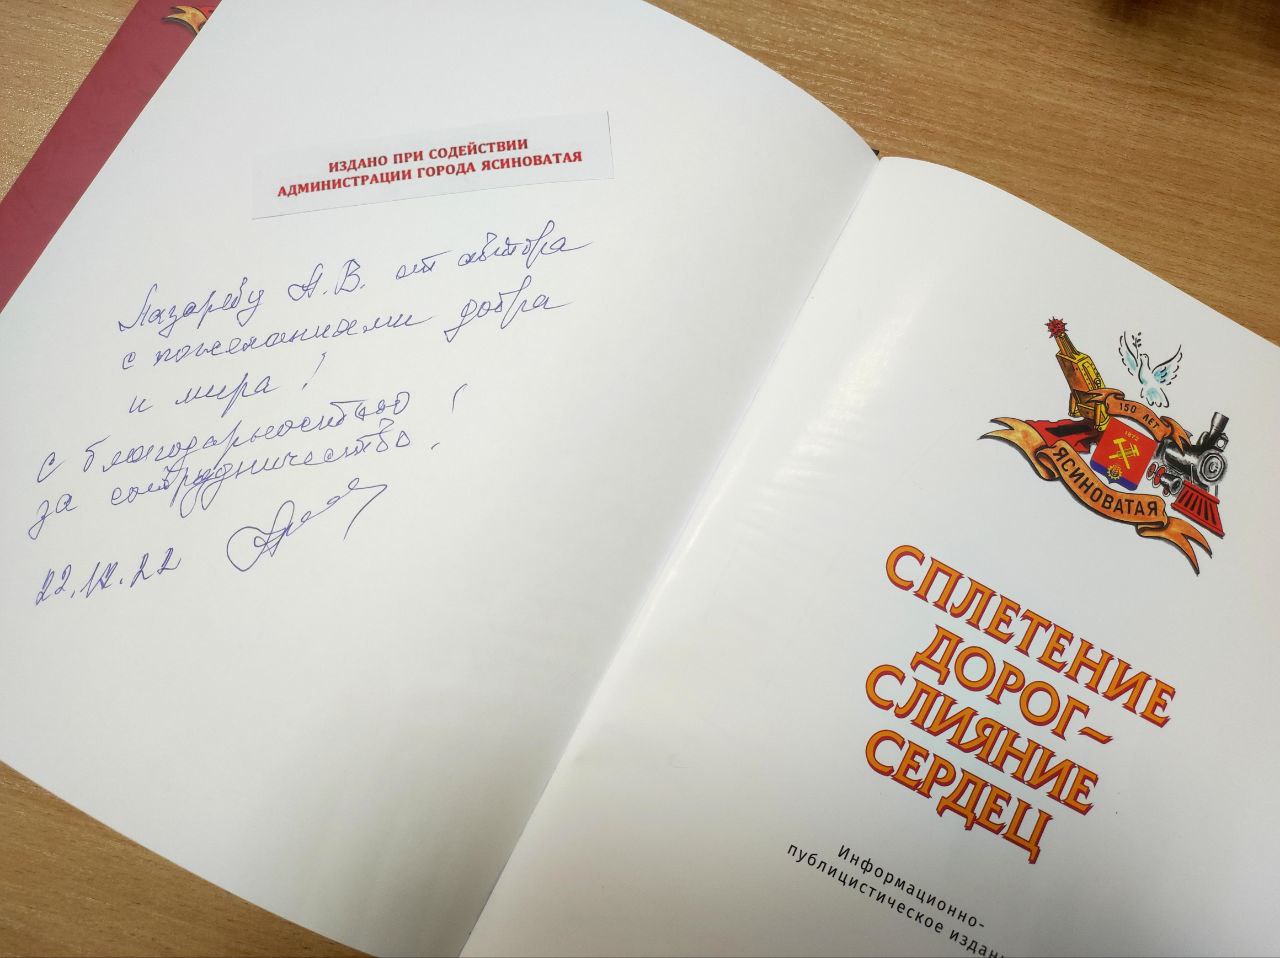 ИЗДАНО ПРИ СОДЕЙСТВИИ
АДМИНИСТРАЦИИ ГОРОДА ЯСИНОВАТАЯ
Лазареву А.В. от автора
с пожеланиями добра
и мира!
С благодарностью
за сотрудничество!
22.12.22
150 ЛЕТ
1872
ЯСИНОВАТАЯ
СПЛЕТЕНИЕ
ДОРОГ~
СЛИЯНИЕ
СЕРДЕЦ
Информационно-
публицистическое издан